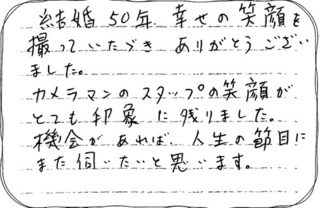 結婚50年、幸せの笑顔を
撮っていただき ありがとうござい
ました。
カメラマンのスタッフの笑顔が
とても印象に残りました。
機会があれば、人生の節目に
また伺いたいと思います。